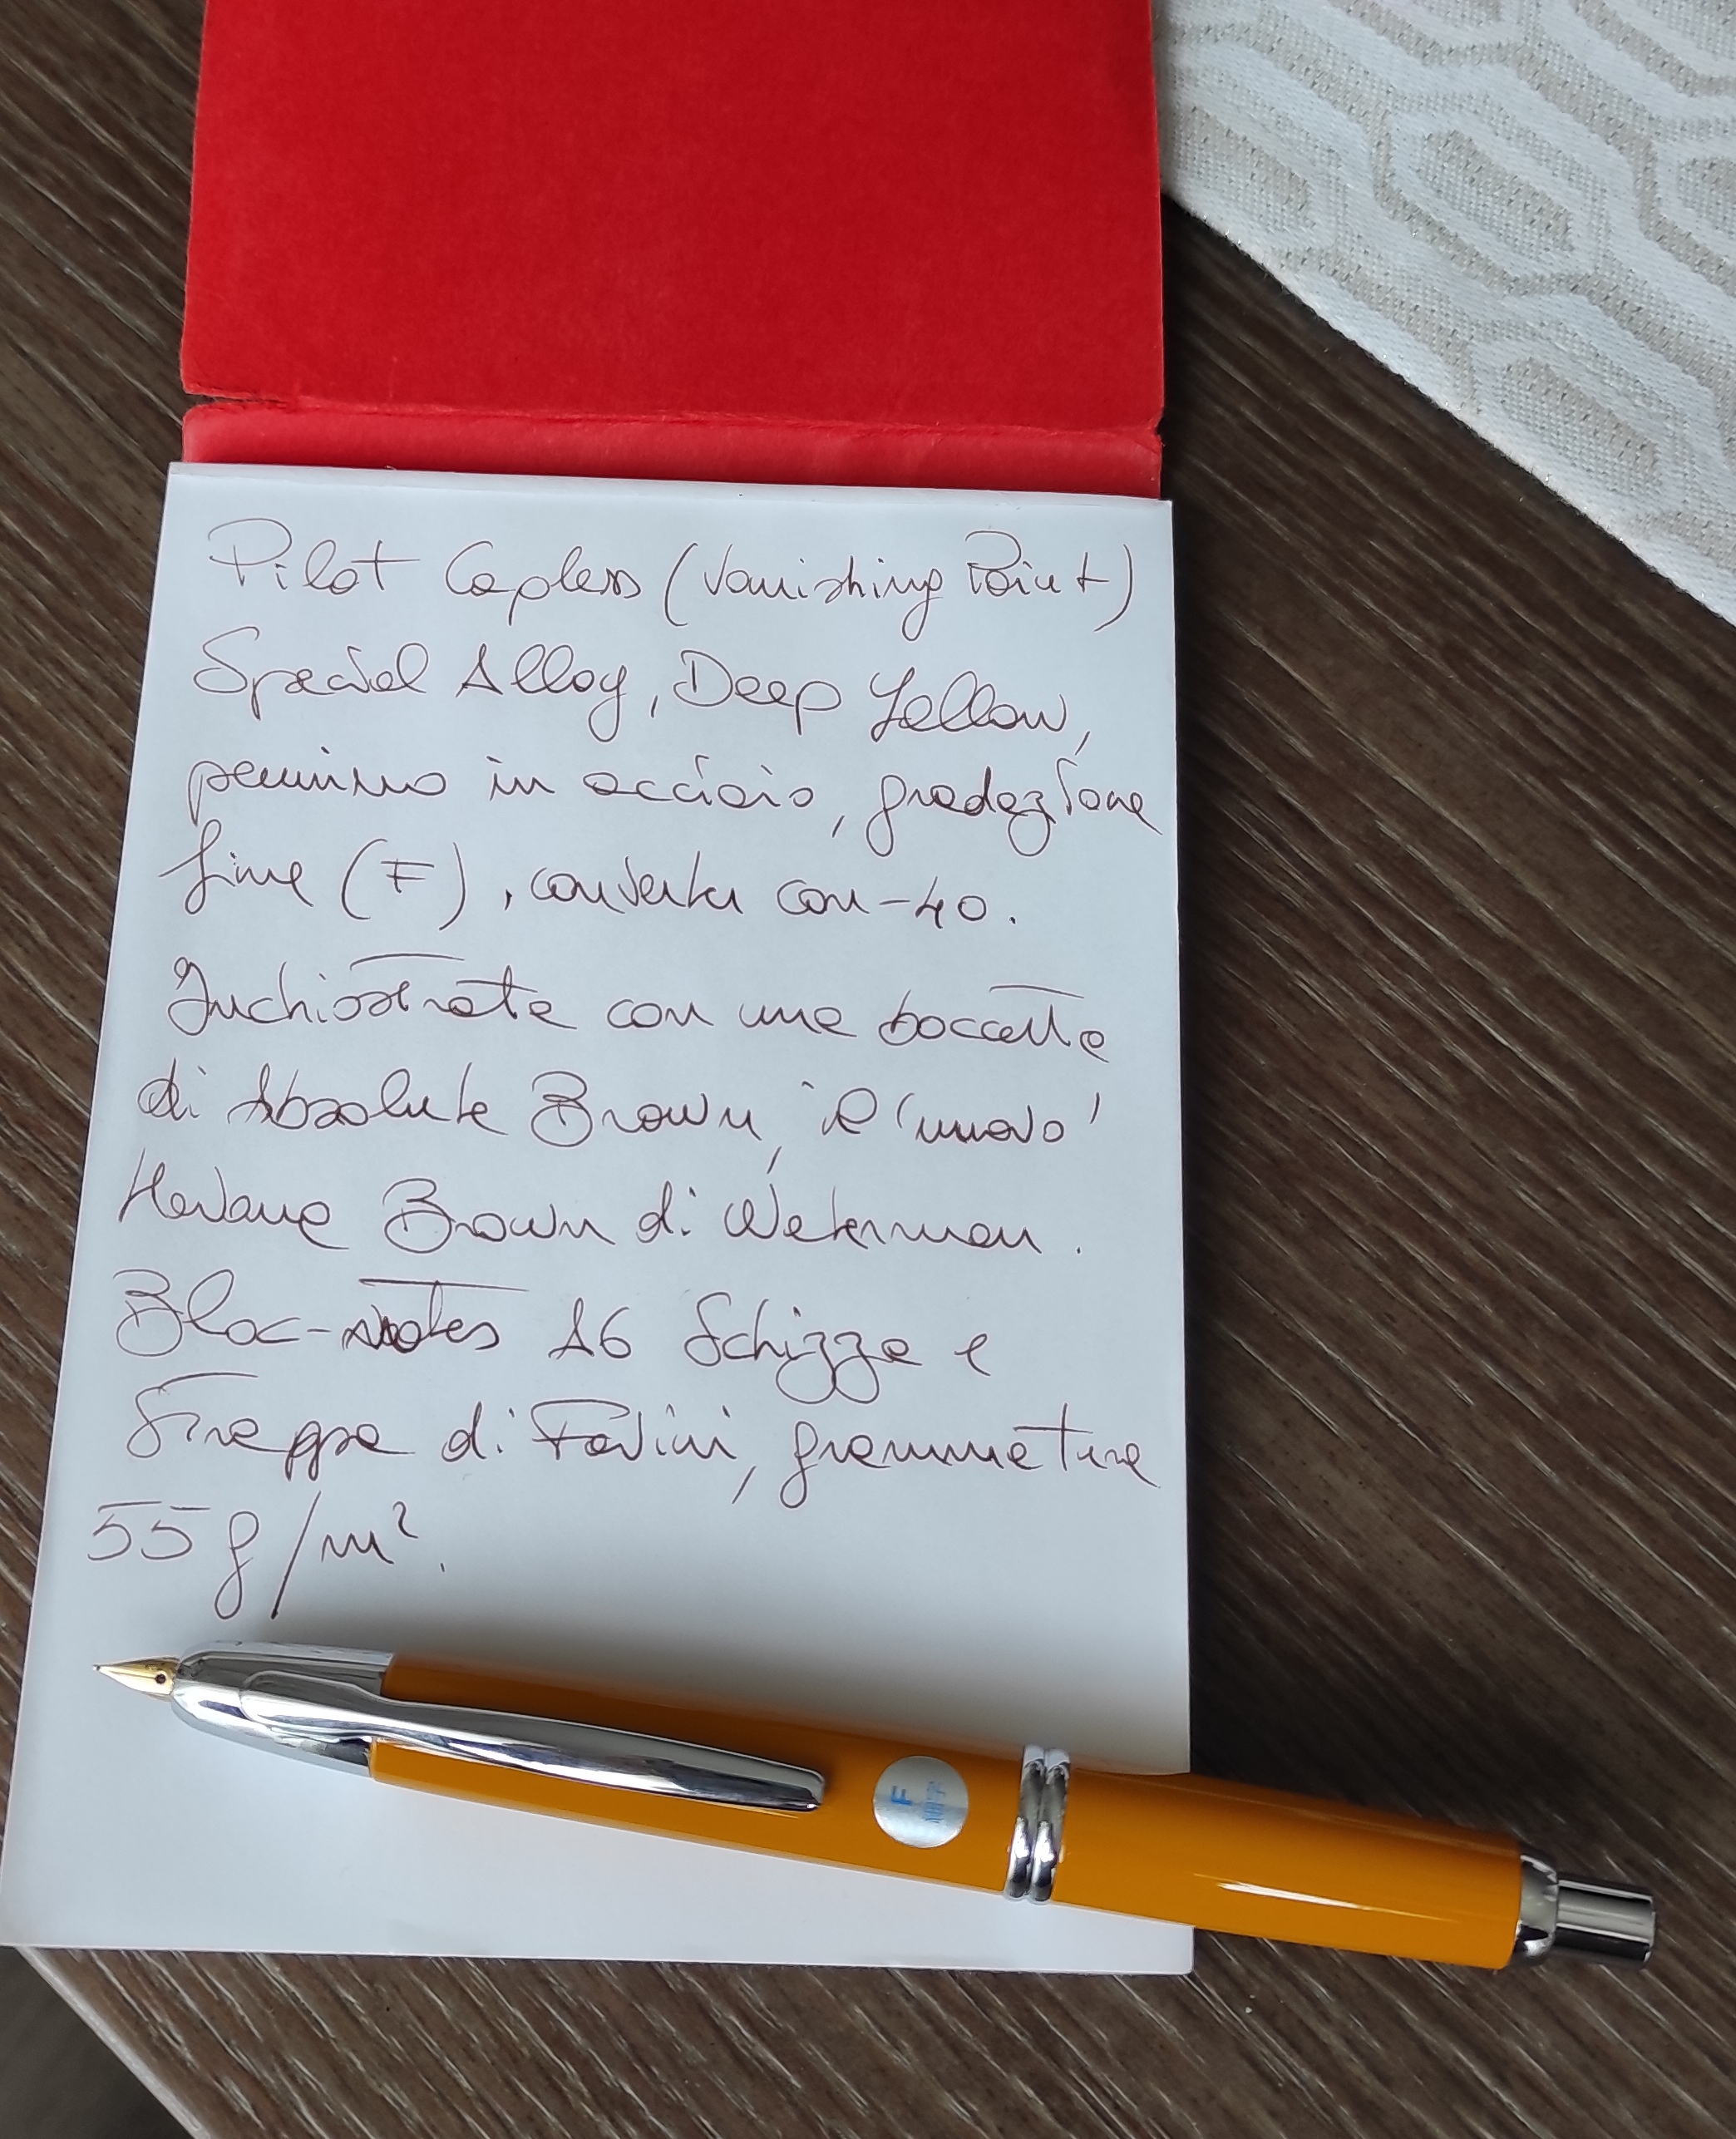 Pilot Capless (Vanishing Point)
Special Alloy, Deep Yellow,
pennino in acciaio, gradazione
fine (F), converter con-40.
Inchiostrata con una boccetta
di Absolute Brown, il 'nuovo'
Havana Brown di Waterman.
Bloc-notes A6 Schizza e
Strappa di Favini, grammatura
55 g/m².
F
細字